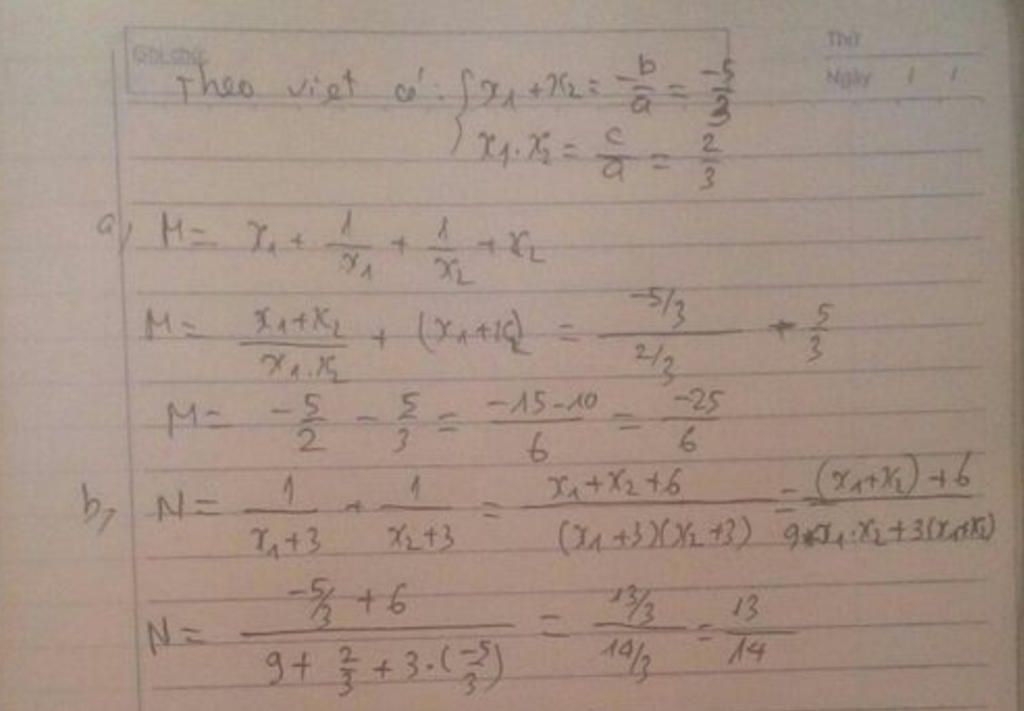 Ghi chú:
Thứ
Ngày / /
Theo viet có: { x₁ + x₂ = -b/a = -5/3
x₁.x₂ = c/a = 2/3
a, M = x₁ + 1/x₁ + 1/x₂ + x₂
M = (x₁+x₂)/(x₁.x₂) + (x₁+x₂) = (-5/3)/(2/3) - 5/3
M = -5/2 - 5/3 = (-15-10)/6 = -25/6
b, N = 1/(x₁+3) + 1/(x₂+3) = (x₁+x₂+6)/((x₁+3)(x₂+3)) = ((x₁+x₂)+6)/(9+x₁.x₂+3(x₁+x₂))
N = (-5/3 + 6)/(9 + 2/3 + 3.(-5/3)) = (13/3)/(14/3) = 13/14